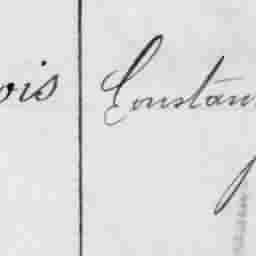 ois Constan